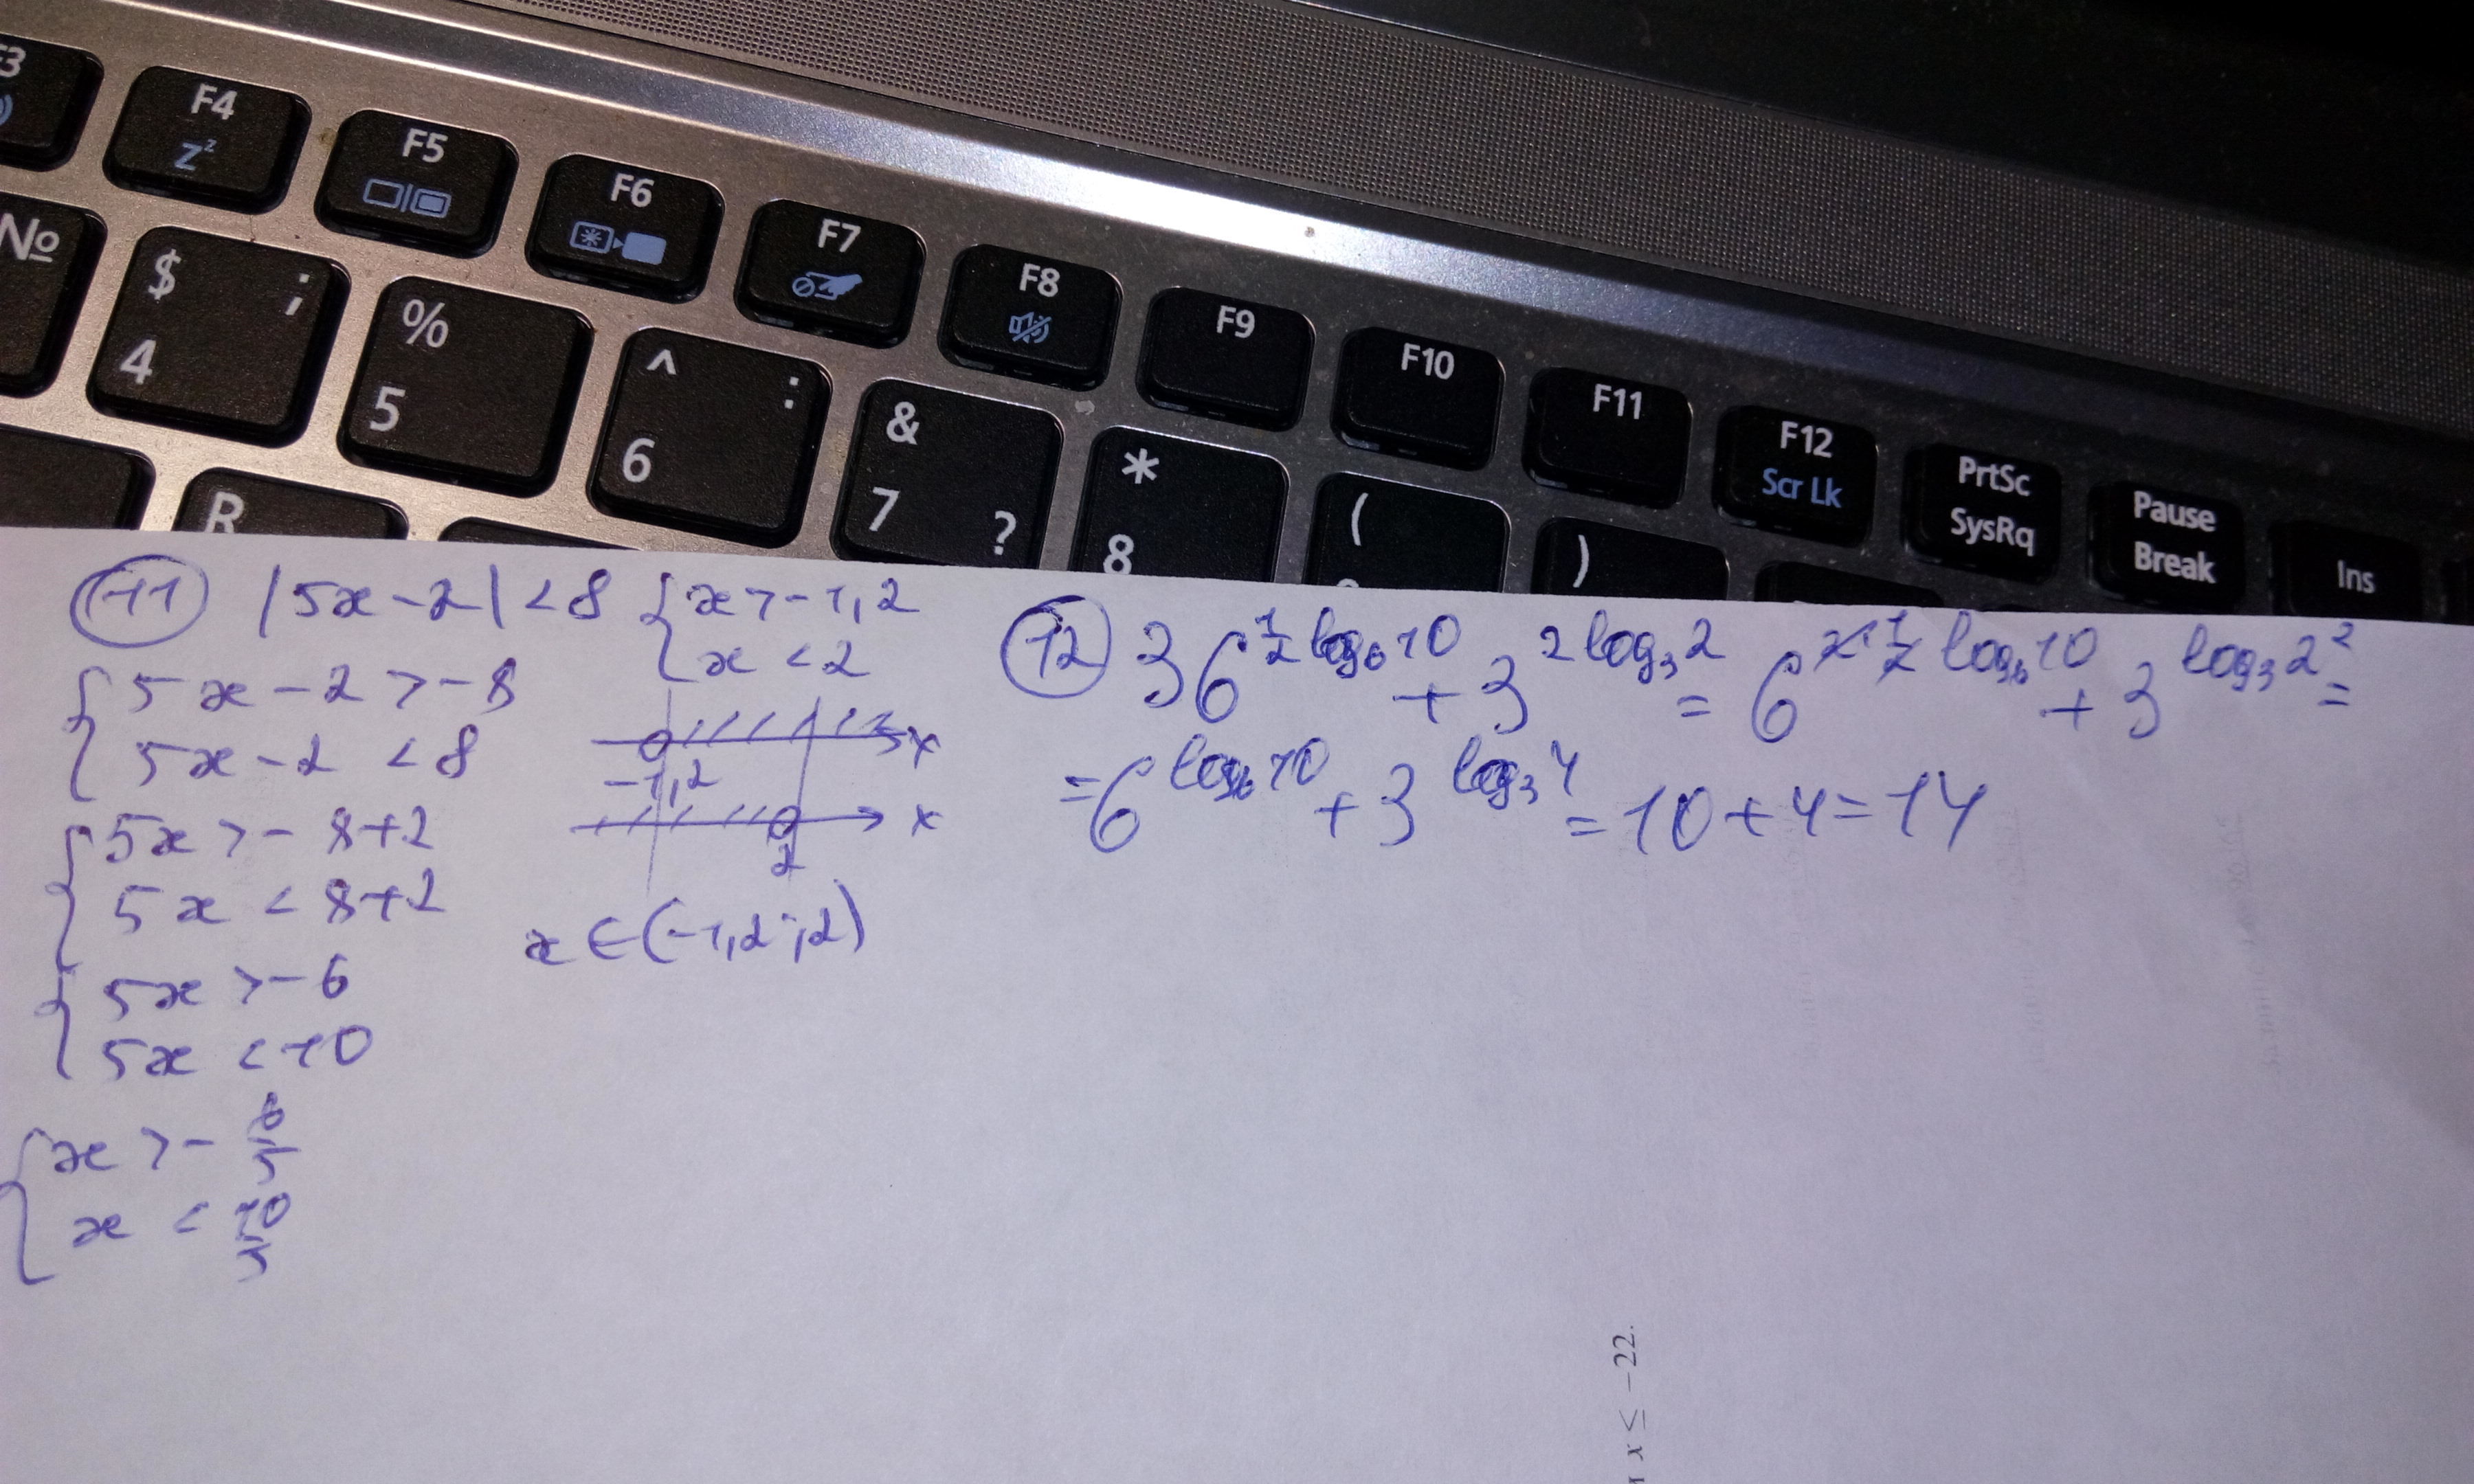 F3
F4
Zz
F5
F6
F7
F8
F9
F10
F11
F12
Scr Lk
PrtSc
SysRq
Pause
Break
Ins
№
$ ;
4
%
5
^ :
6
&
7 ?
*
8
(
)
R
11 |5x-2|<8
{5x-2>-8
5x-2<8
{5x>-8+2
5x<8+2
{5x>-6
5x<10
{x>-6/5
x<10/5
{x>-1,2
x<2
x
-1,2
x
2
x∈(-1,2;2)
12 36^(1/2 log₆10) + 3^(2log₃2) = 6^(2·1/2 log₆10) + 3^(log₃2²) =
= 6^(log₆10) + 3^(log₃4) = 10+4=14
x ≤ −22.